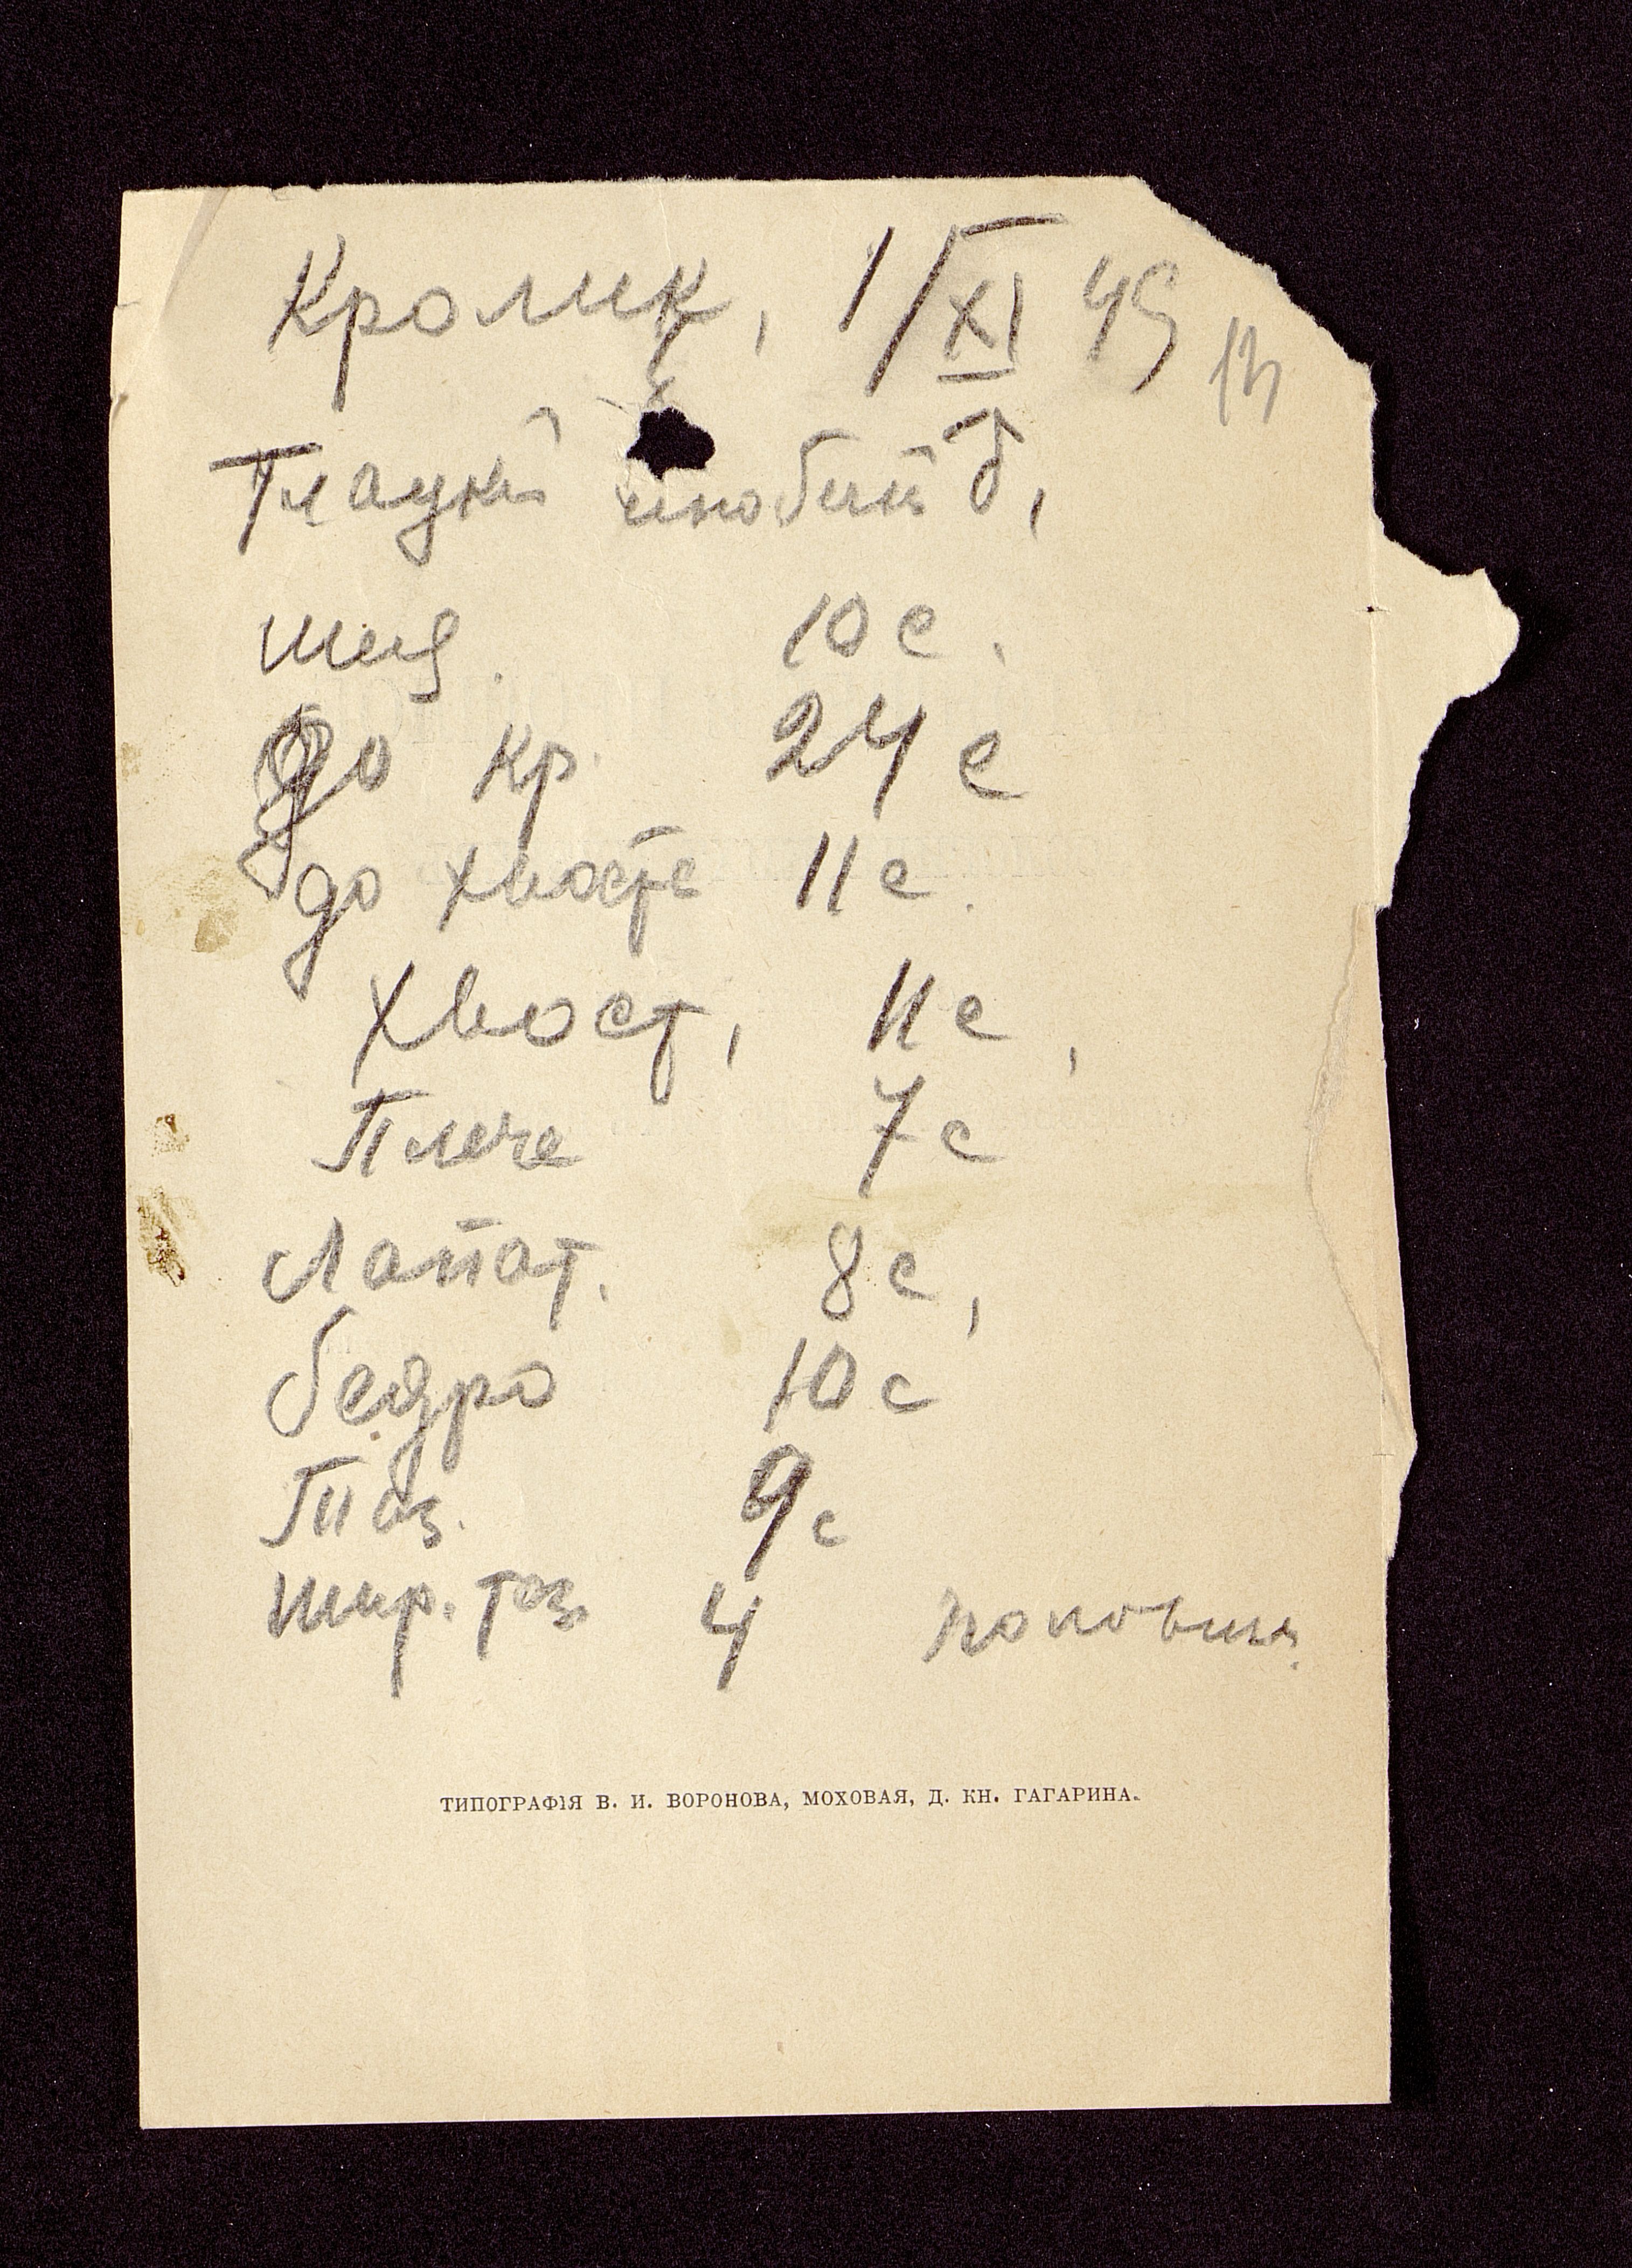 Кролик, 1/XI 49
шея 10 с.
до кр. 24 с
до хвоста 11 с.
Хвост, 11 с,
Плече 7 с
Лопат. 8 с,
бедро 10 с
Таз. 9 с
шир. таз 4
ТИПОГРАФІЯ В. И. ВОРОНОВА, МОХОВАЯ, Д. КН. ГАГАРИНА.